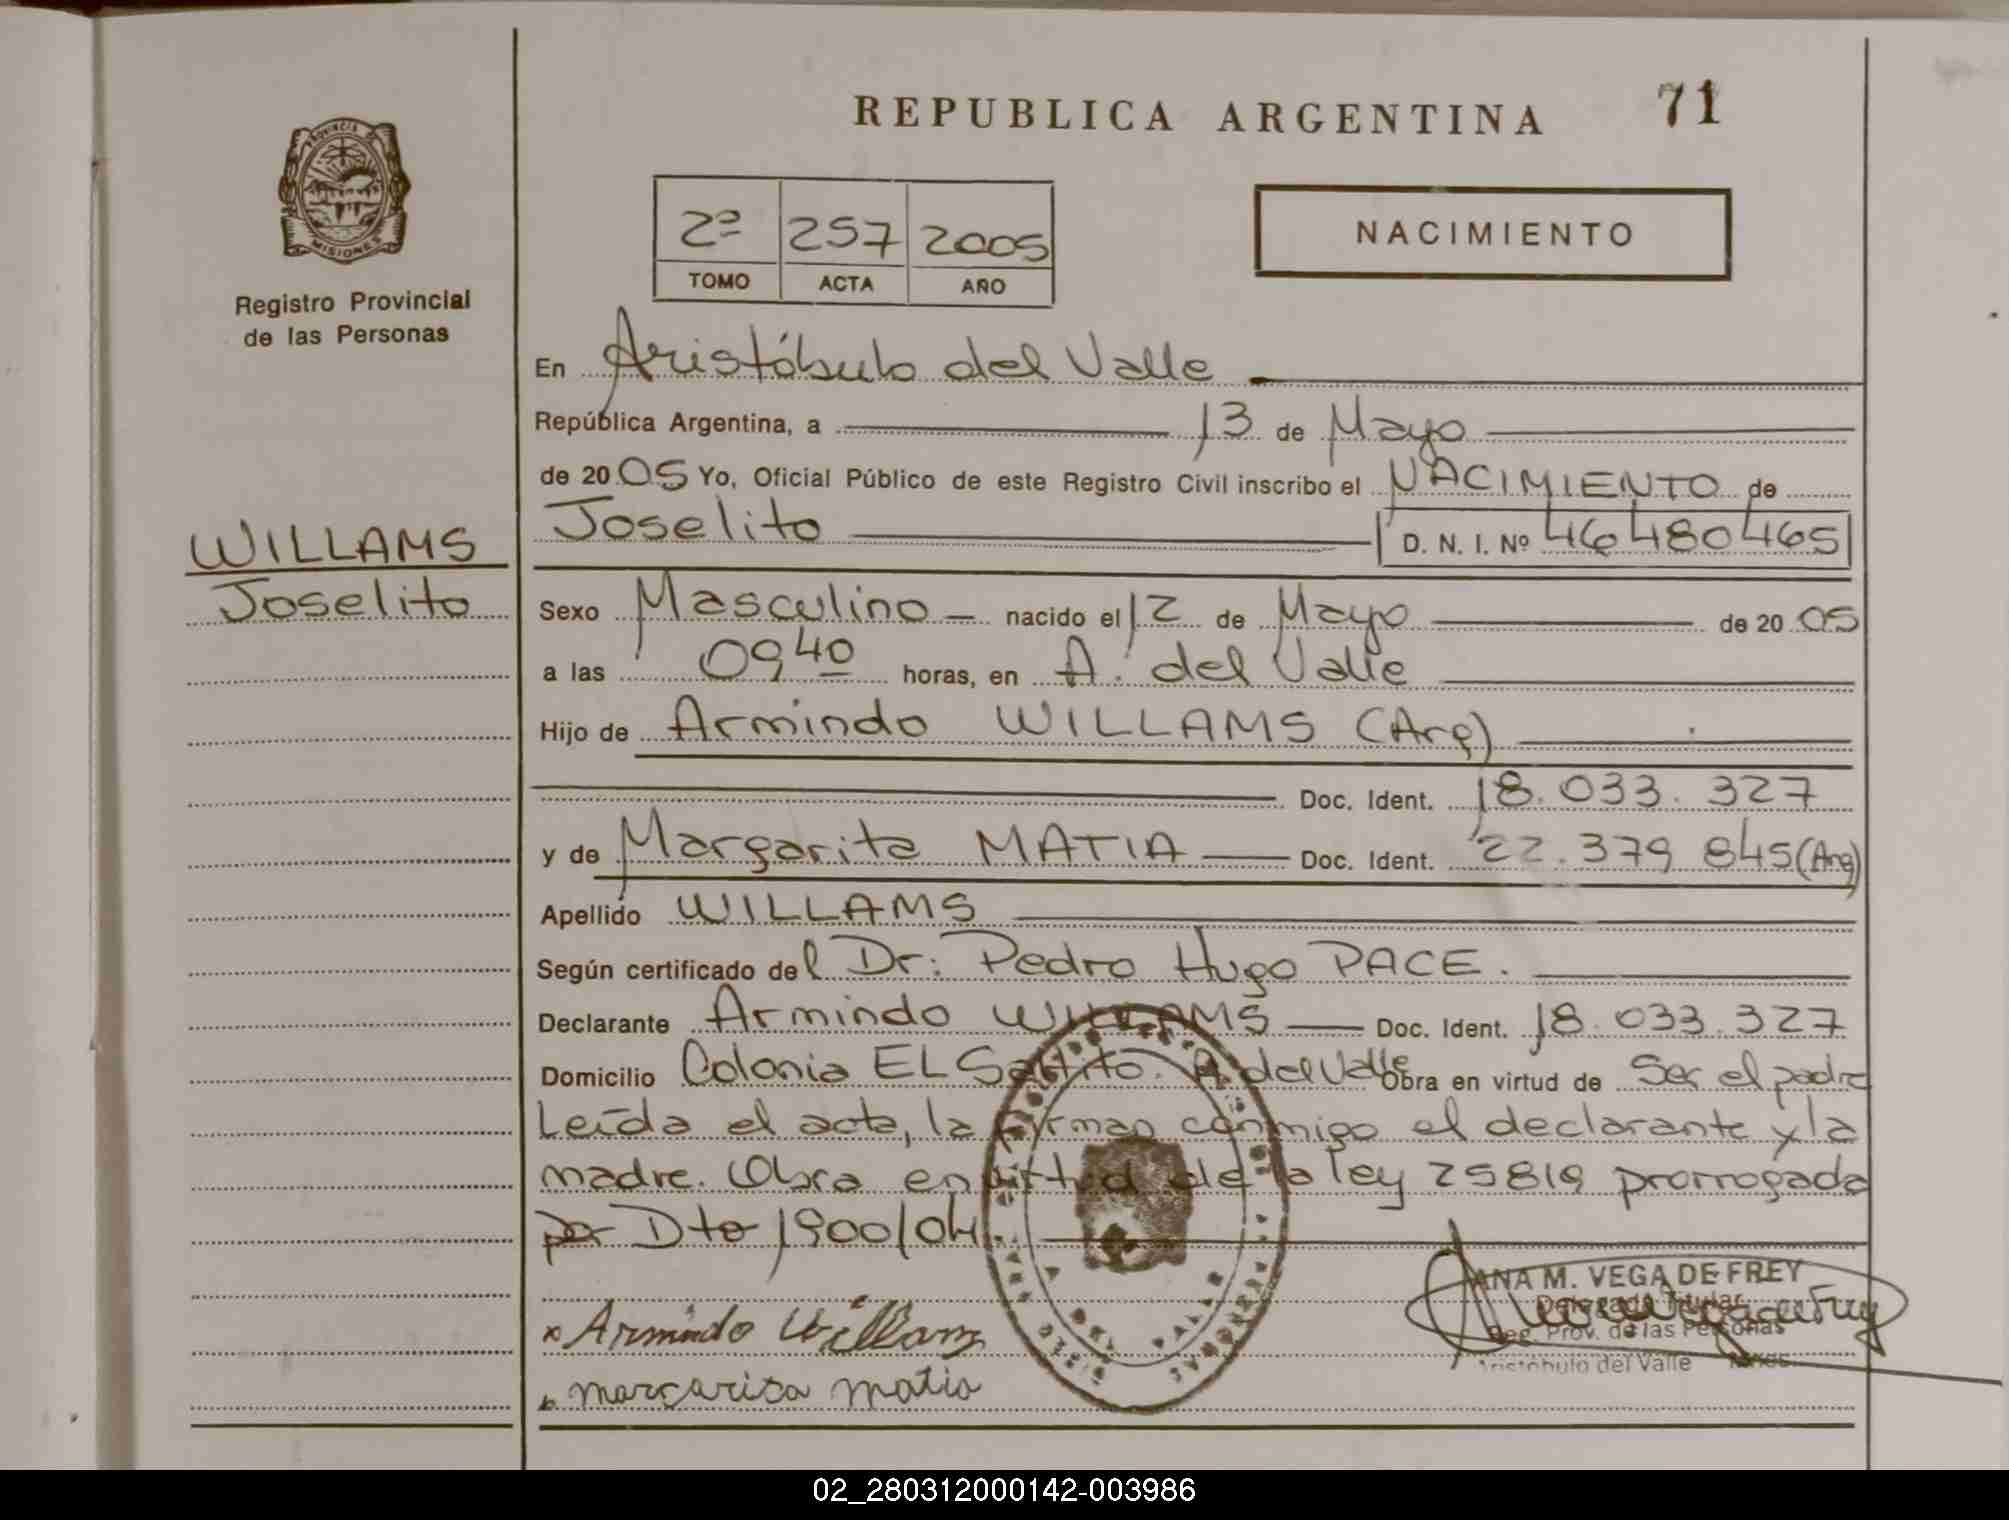 REPUBLICA ARGENTINA 71
PROVINCIA DE
MISIONES
Registro Provincial
de las Personas
2º 257 2005
TOMO ACTA AÑO
NACIMIENTO
WILLAMS
Joselito
En Aristóbulo del Valle
República Argentina, a 13 de Mayo
de 2005 Yo, Oficial Público de este Registro Civil inscribo el NACIMIENTO de
Joselito D. N. I. Nº 46480465
Sexo Masculino nacido el 12 de Mayo de 2005
a las 09 40 horas, en A. del Valle
Hijo de Armindo WILLAMS (Arg)
Doc. Ident. 18.033.327
y de Margarita MATIA Doc. Ident. 22.379 845 (Arg)
Apellido WILLAMS
Según certificado del Dr. Pedro Hugo PACE.
Declarante Armindo WILLAMS Doc. Ident. 18.033.327
Domicilio Colonia EL Saltito. A. del Valle Obra en virtud de Ser el padre
Leída el acta, la firman conmigo el declarante y la
madre. Obra en virtud de la ley 25819 prorrogada
por Dto 1900/04
x Armindo Willams
margarita matia
ANA M. VEGA DE FREY
Delegada Titular
Reg. Prov. de las Personas
Aristóbulo del Valle
02_280312000142-003986